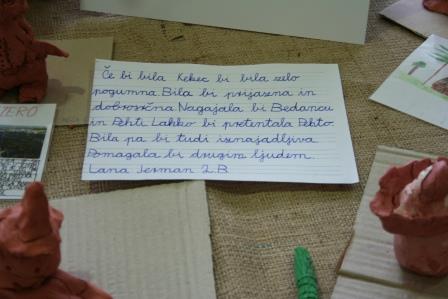 Če bi bila Kekec bi bila zelo
pogumna. Bila bi prijazna in
dobrosrčna. Nagajala bi Bedancu
in Pehti. Lahko bi pretentala Pehto.
Bila pa bi tudi iznajdljiva
Pomagala bi drugim ljudem.
Lana Jerman 2.B